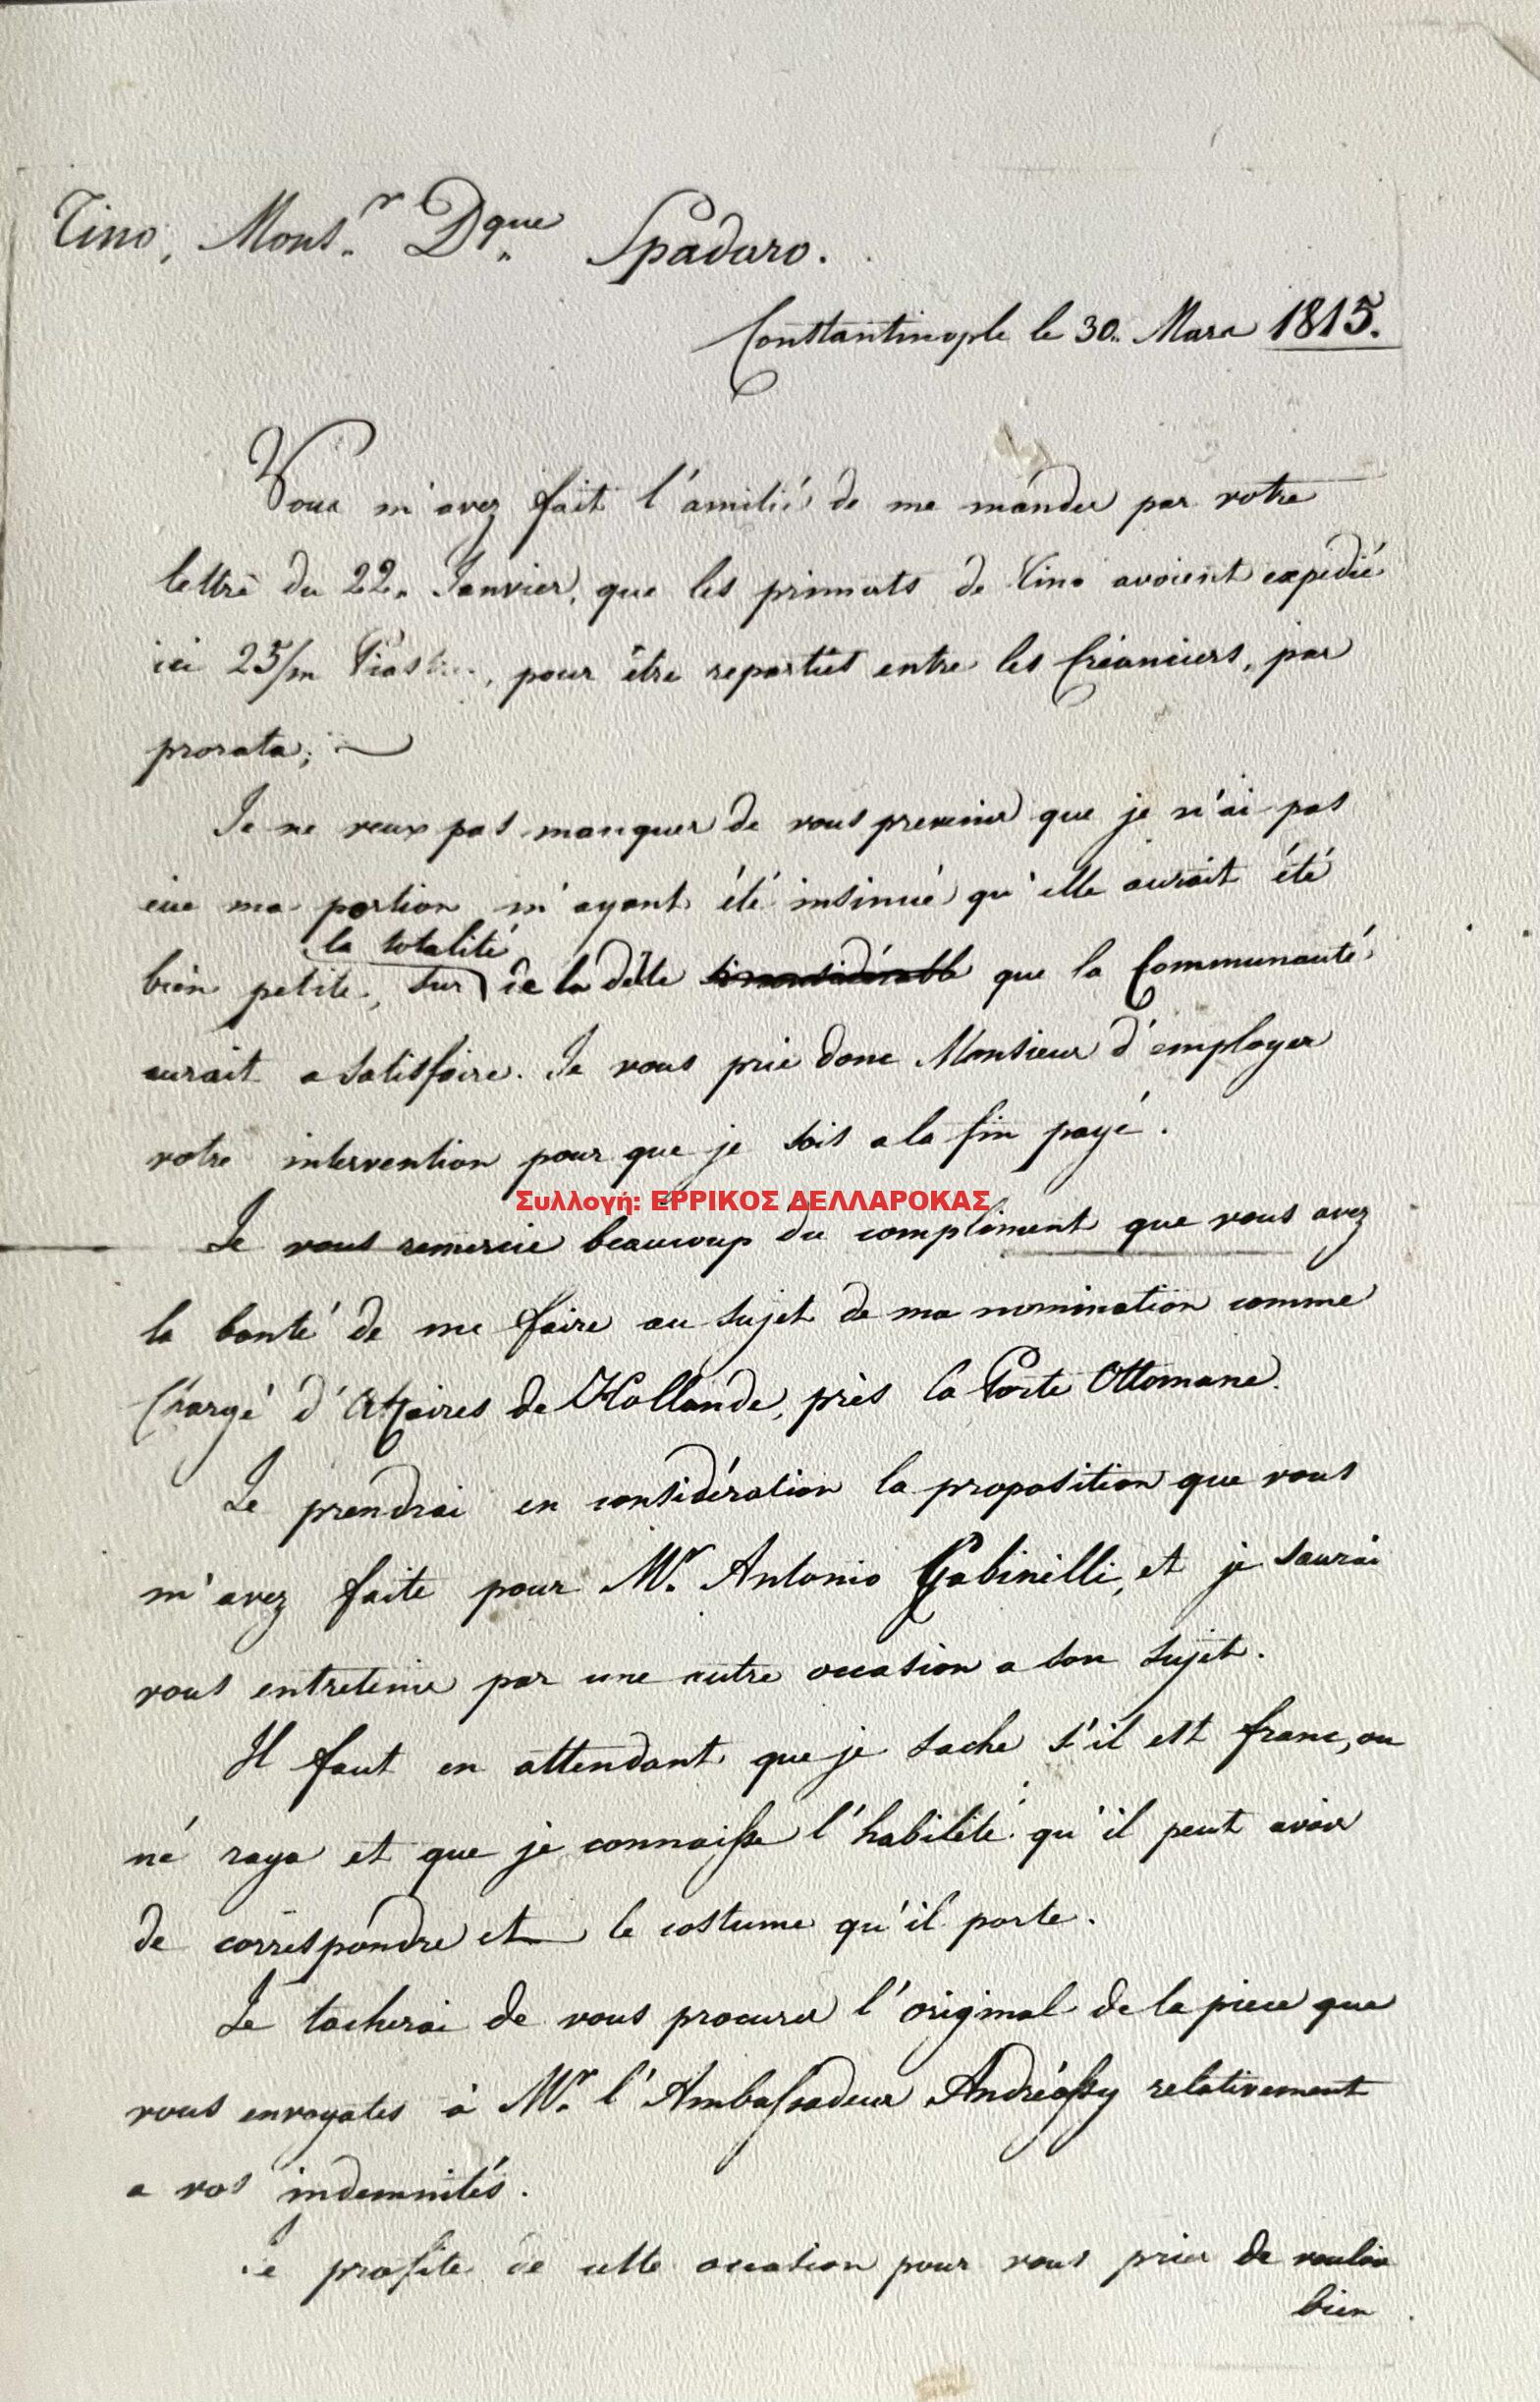 Tino, Mons.r D.que Spadaro.
Constantinople le 30. Mars 1815.
Vous m'avez fait l'amitié de me mander par votre
lettre du 22. Janvier, que les primats de Tino avoient expedié
ici 25/m Piastres, pour être repartiet entre les Créanciers, par
prorata;
Je ne veux pas manquer de vous prevenir que je n'ai pas
eue ma portion m'ayant été insinué qu'elle aurait été
la totalité
bien petite, sur de la dette que la Communauté
aurait a satisfaire. Je vous prie donc Monsieur d'employer
votre intervention pour que je sois a la fin payé.
Συλλογή: ΕΡΡΙΚΟΣ ΔΕΛΛΑΡΟΚΑΣ
Je vous remercie beaucoup du compliment que vous avez
la bonté de me faire au sujet de ma nomination comme
Chargé d'Affaires de Hollande, près la Porte Ottomane.
Je prendrai en considération la proposition que vous
m'avez faite pour Mr. Antonio Gabinelli, et je saurai
vous entretenir par une autre occasion a son sujet.
Il faut en attendant que je sache s'il est franc, ou
né raya et que je connaisse l'habilité qu'il peut avoir
de correspondre et le costume qu'il porte.
Je tacherai de vous procurer l'original de la piece que
vous envoyates à Mr. l'Ambassadeur Andréossy relativement
a vos indemnités.
Je profite de cette occasion pour vous prier de vouloir
bien